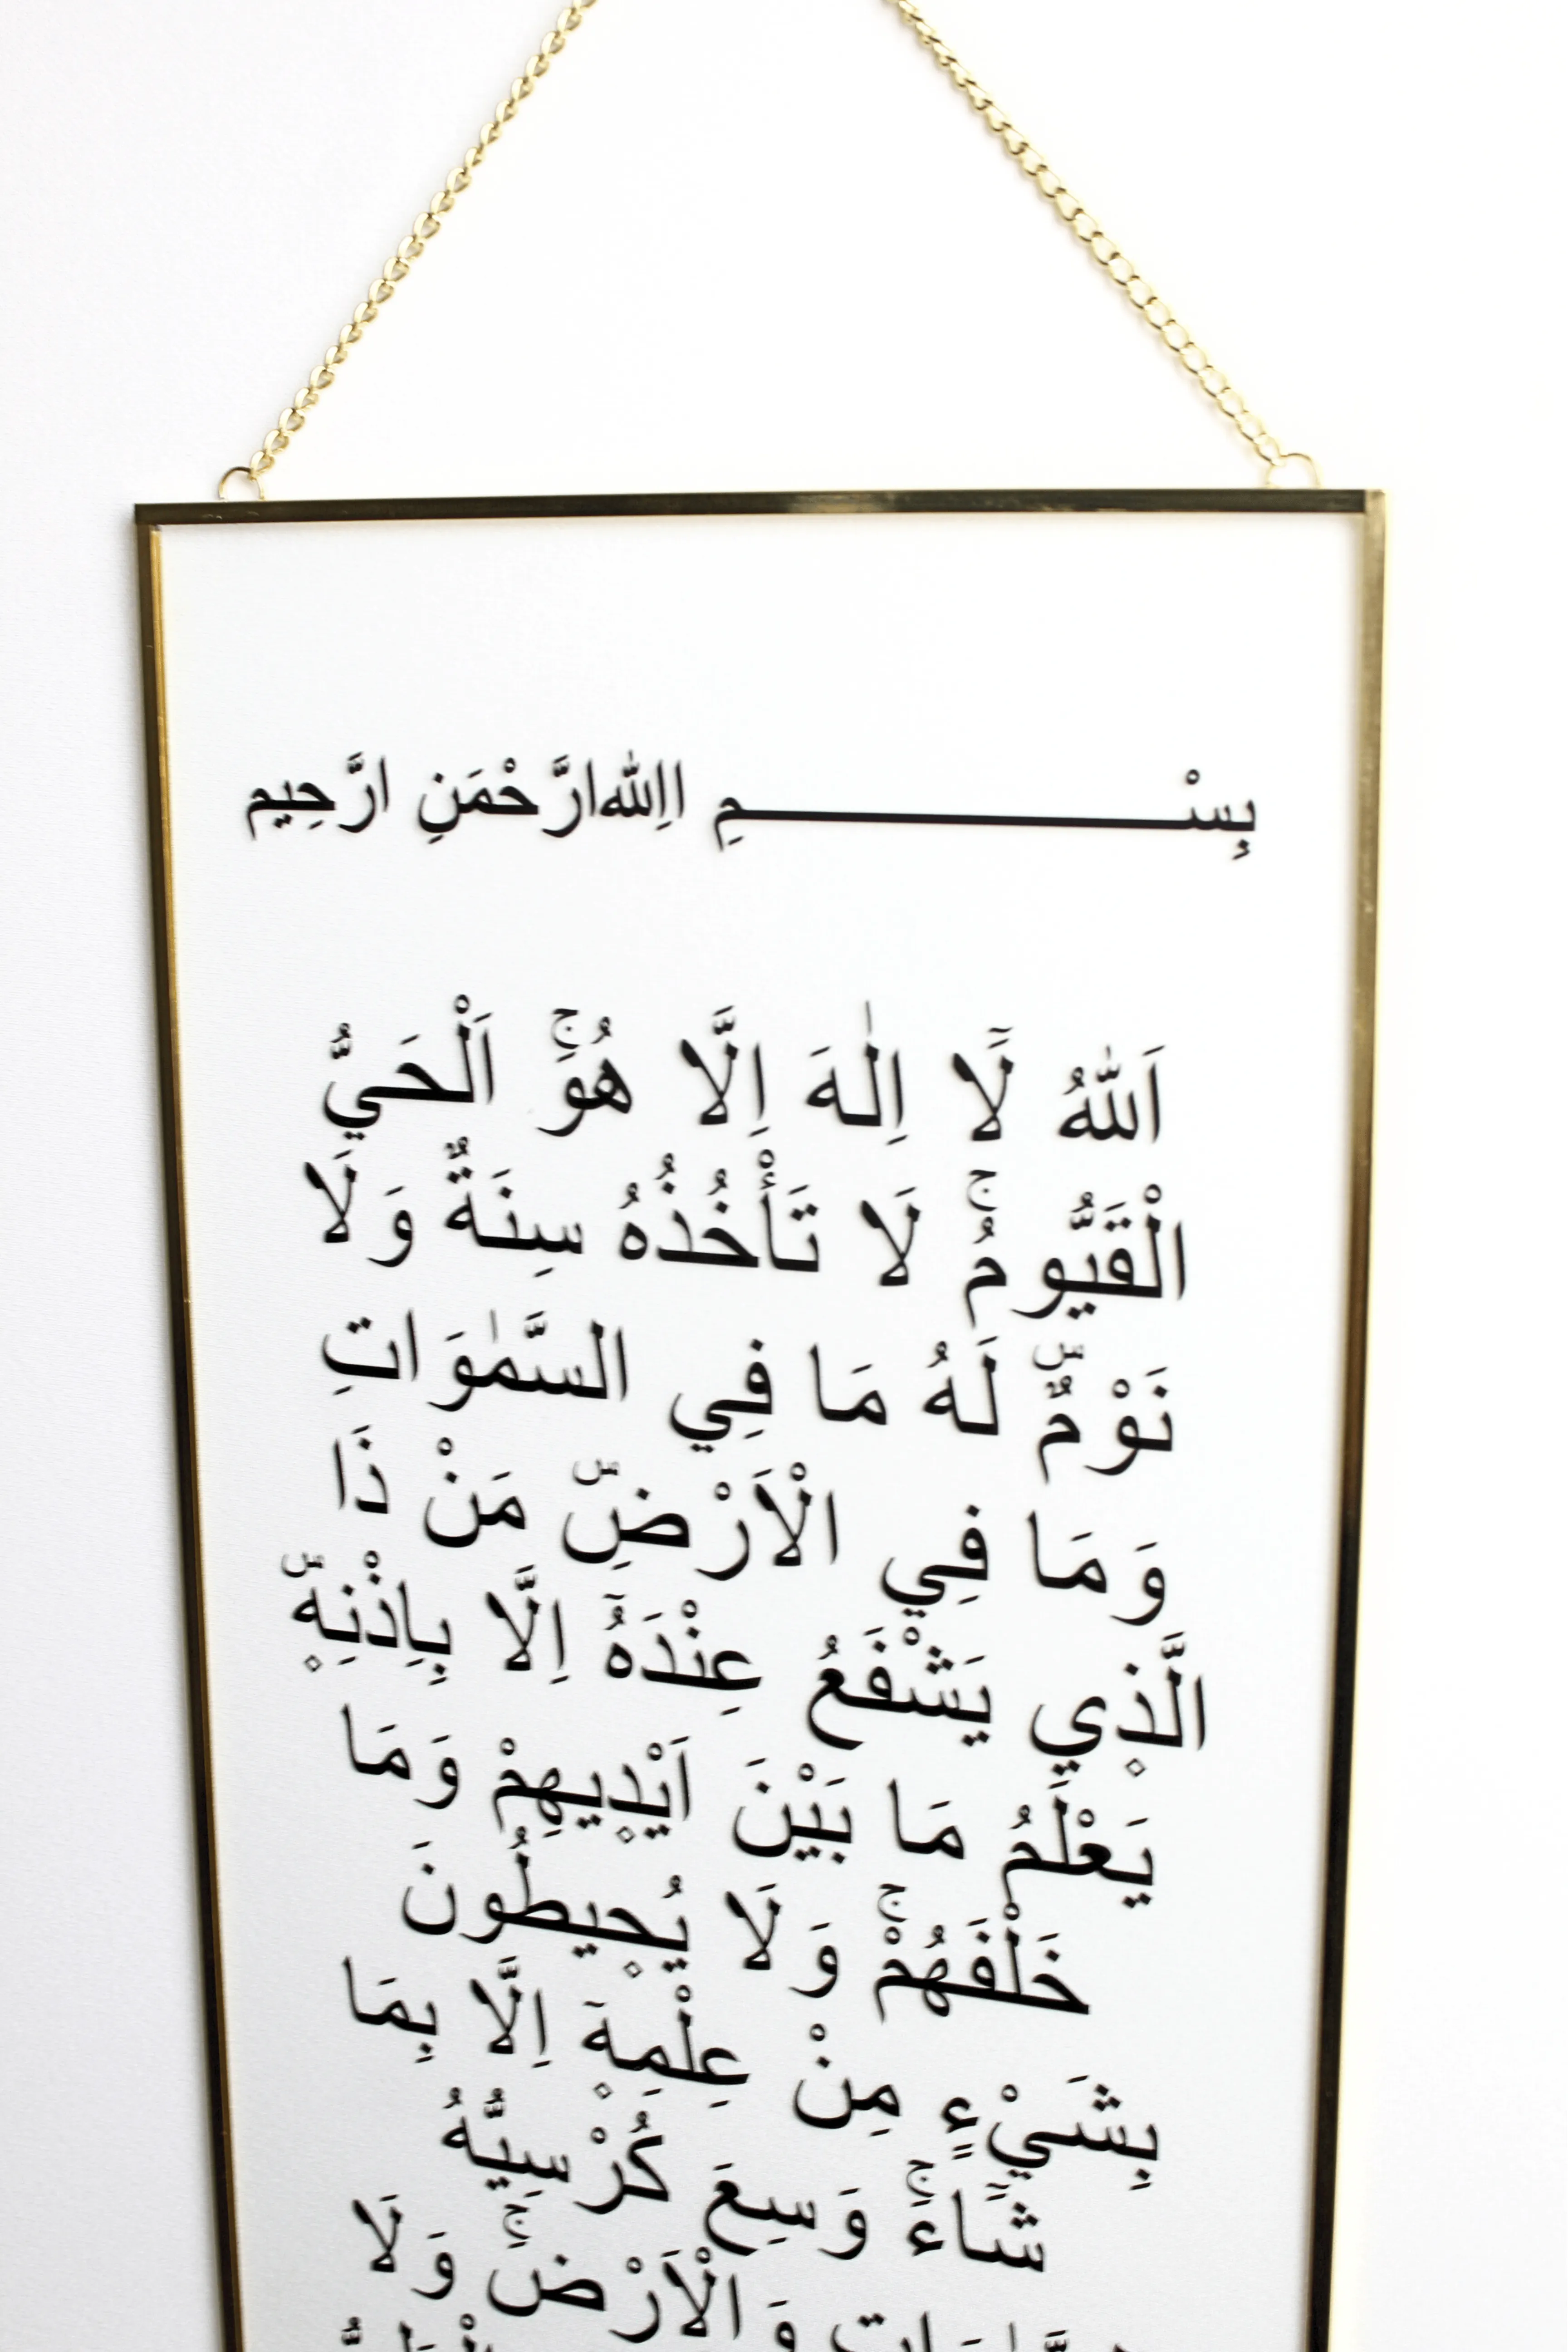 بِسْـــــــــــــمِ االِلّٰهِ ارَّحْمَنِ ارَّحِيم
اَللّٰهُ لَٓا اِلٰهَ اِلَّا هُوَۚ اَلْحَيُّ
الْقَيُّومُۚ لَا تَأْخُذُهُ سِنَةٌ وَلَا
نَوْمٌۜ لَهُ مَا فِي السَّمٰوَاتِ
وَمَا فِي الْاَرْضِۜ مَنْ ذَا
الَّذ۪ي يَشْفَعُ عِنْدَهُٓ اِلَّا بِاِذْنِه۪ۜ
يَعْلَمُ مَا بَيْنَ اَيْد۪يهِمْ وَمَا
خَلْفَهُمْۚ وَلَا يُح۪يطُونَ
بِشَيْءٍ مِنْ عِلْمِه۪ٓ اِلَّا بِمَا
شَٓاءَۚ وَسِعَ كُرْسِيُّهُ
وَالْاَرْضَۚ وَلَا